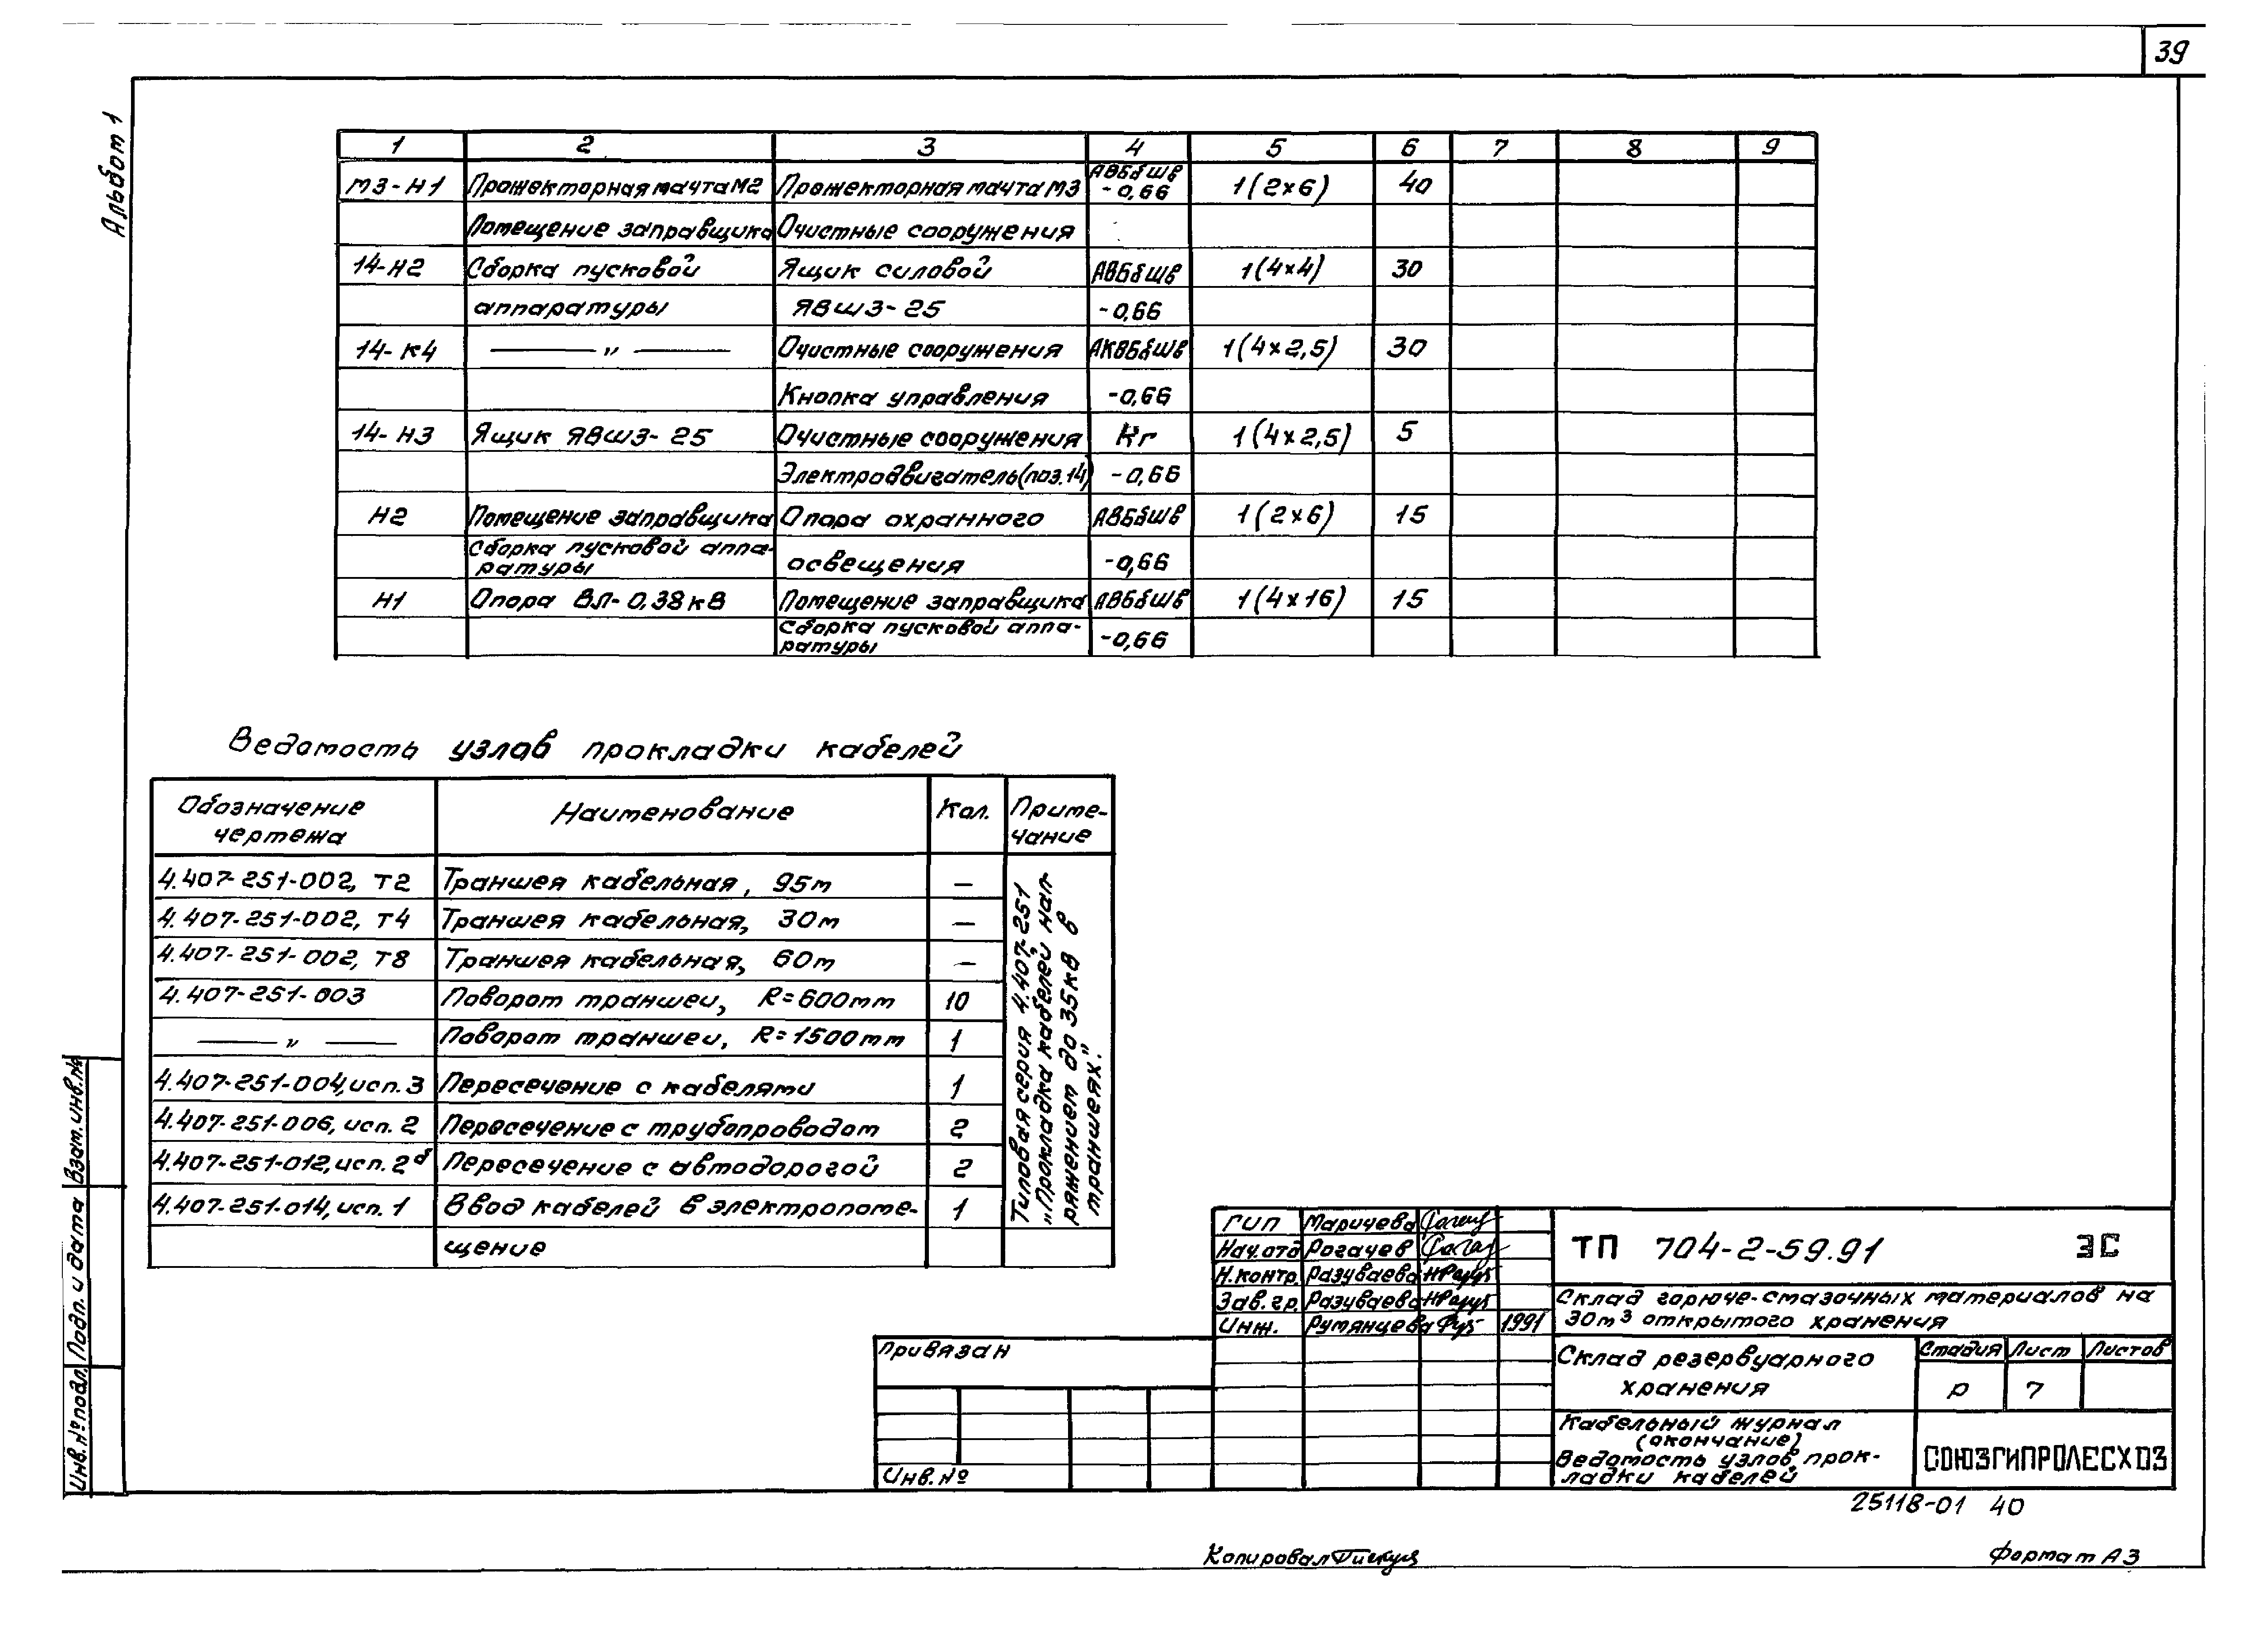 39
Альбом 1
1 2 3 4 5 6 7 8 9
М3-Н1 Прожекторная мачта М2 Прожекторная мачта М3 АВБбШв -0,66 1(2×6) 40
Помещение заправщика Очистные сооружения
14-Н2 Сборка пусковой Ящик силовой АВБбШв 1(4×4) 30
аппаратуры ЯВШ3-25 -0,66
14-К4 — " — Очистные сооружения АКВБбШв 1(4×2,5) 30
Кнопка управления -0,66
14-Н3 Ящик ЯВШ3-25 Очистные сооружения КГ 1(4×2,5) 5
Электродвигатель (поз.14) -0,66
Н2 Помещение заправщика Опора охранного АВБбШв 1(2×6) 15
Сборка пусковой аппа-
ратуры освещения -0,66
Н1 Опора ВЛ-0,38кВ Помещение заправщика АВБбШв 1(4×16) 15
Сборка пусковой аппа-
ратуры -0,66
Ведомость узлов прокладки кабелей
Обозначение чертежа Наименование Кол. Приме-
чание
4.407-251-002, Т2 Траншея кабельная, 95м —
4.407-251-002, Т4 Траншея кабельная, 30м —
4.407-251-002, Т8 Траншея кабельная, 60м —
4.407-251-003 Поворот траншеи, R=600мм 10
— " — Поворот траншеи, R=1500мм 1
4.407-251-004, исп.3 Пересечение с кабелями 1
4.407-251-006, исп. 2 Пересечение с трубопроводом 2
4.407-251-012, исп. 2б Пересечение с автодорогой 2
4.407-251-014, исп. 1 Ввод кабелей в электропоме- 1
щение
Типовая серия 4.407-251
„Прокладка кабелей нап-
ряжением до 35кВ в
траншеях."
Взам. инв.№
Подп. и дата
Инв.№ подл.
ГИП Маричева
Нач.отд Рогачев
Н.контр. Разуваева
Зав.гр. Разуваева
Инж. Румянцева 1991
ТП 704-2-59.91 ЭС
Склад горюче-смазочных материалов на
30м³ открытого хранения
Привязан
Инв.№
Склад резервуарного
хранения
Стадия Лист Листов
Р 7
Кабельный журнал
(окончание)
Ведомость узлов прок-
ладки кабелей
СОЮЗГИПРОЛЕСХОЗ
25118-01 40
Копировал
Формат А3